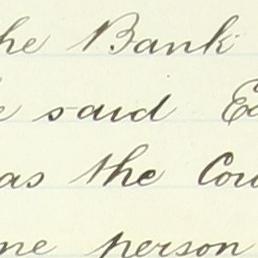 he Bank
e said Ea
as the Cou
me person